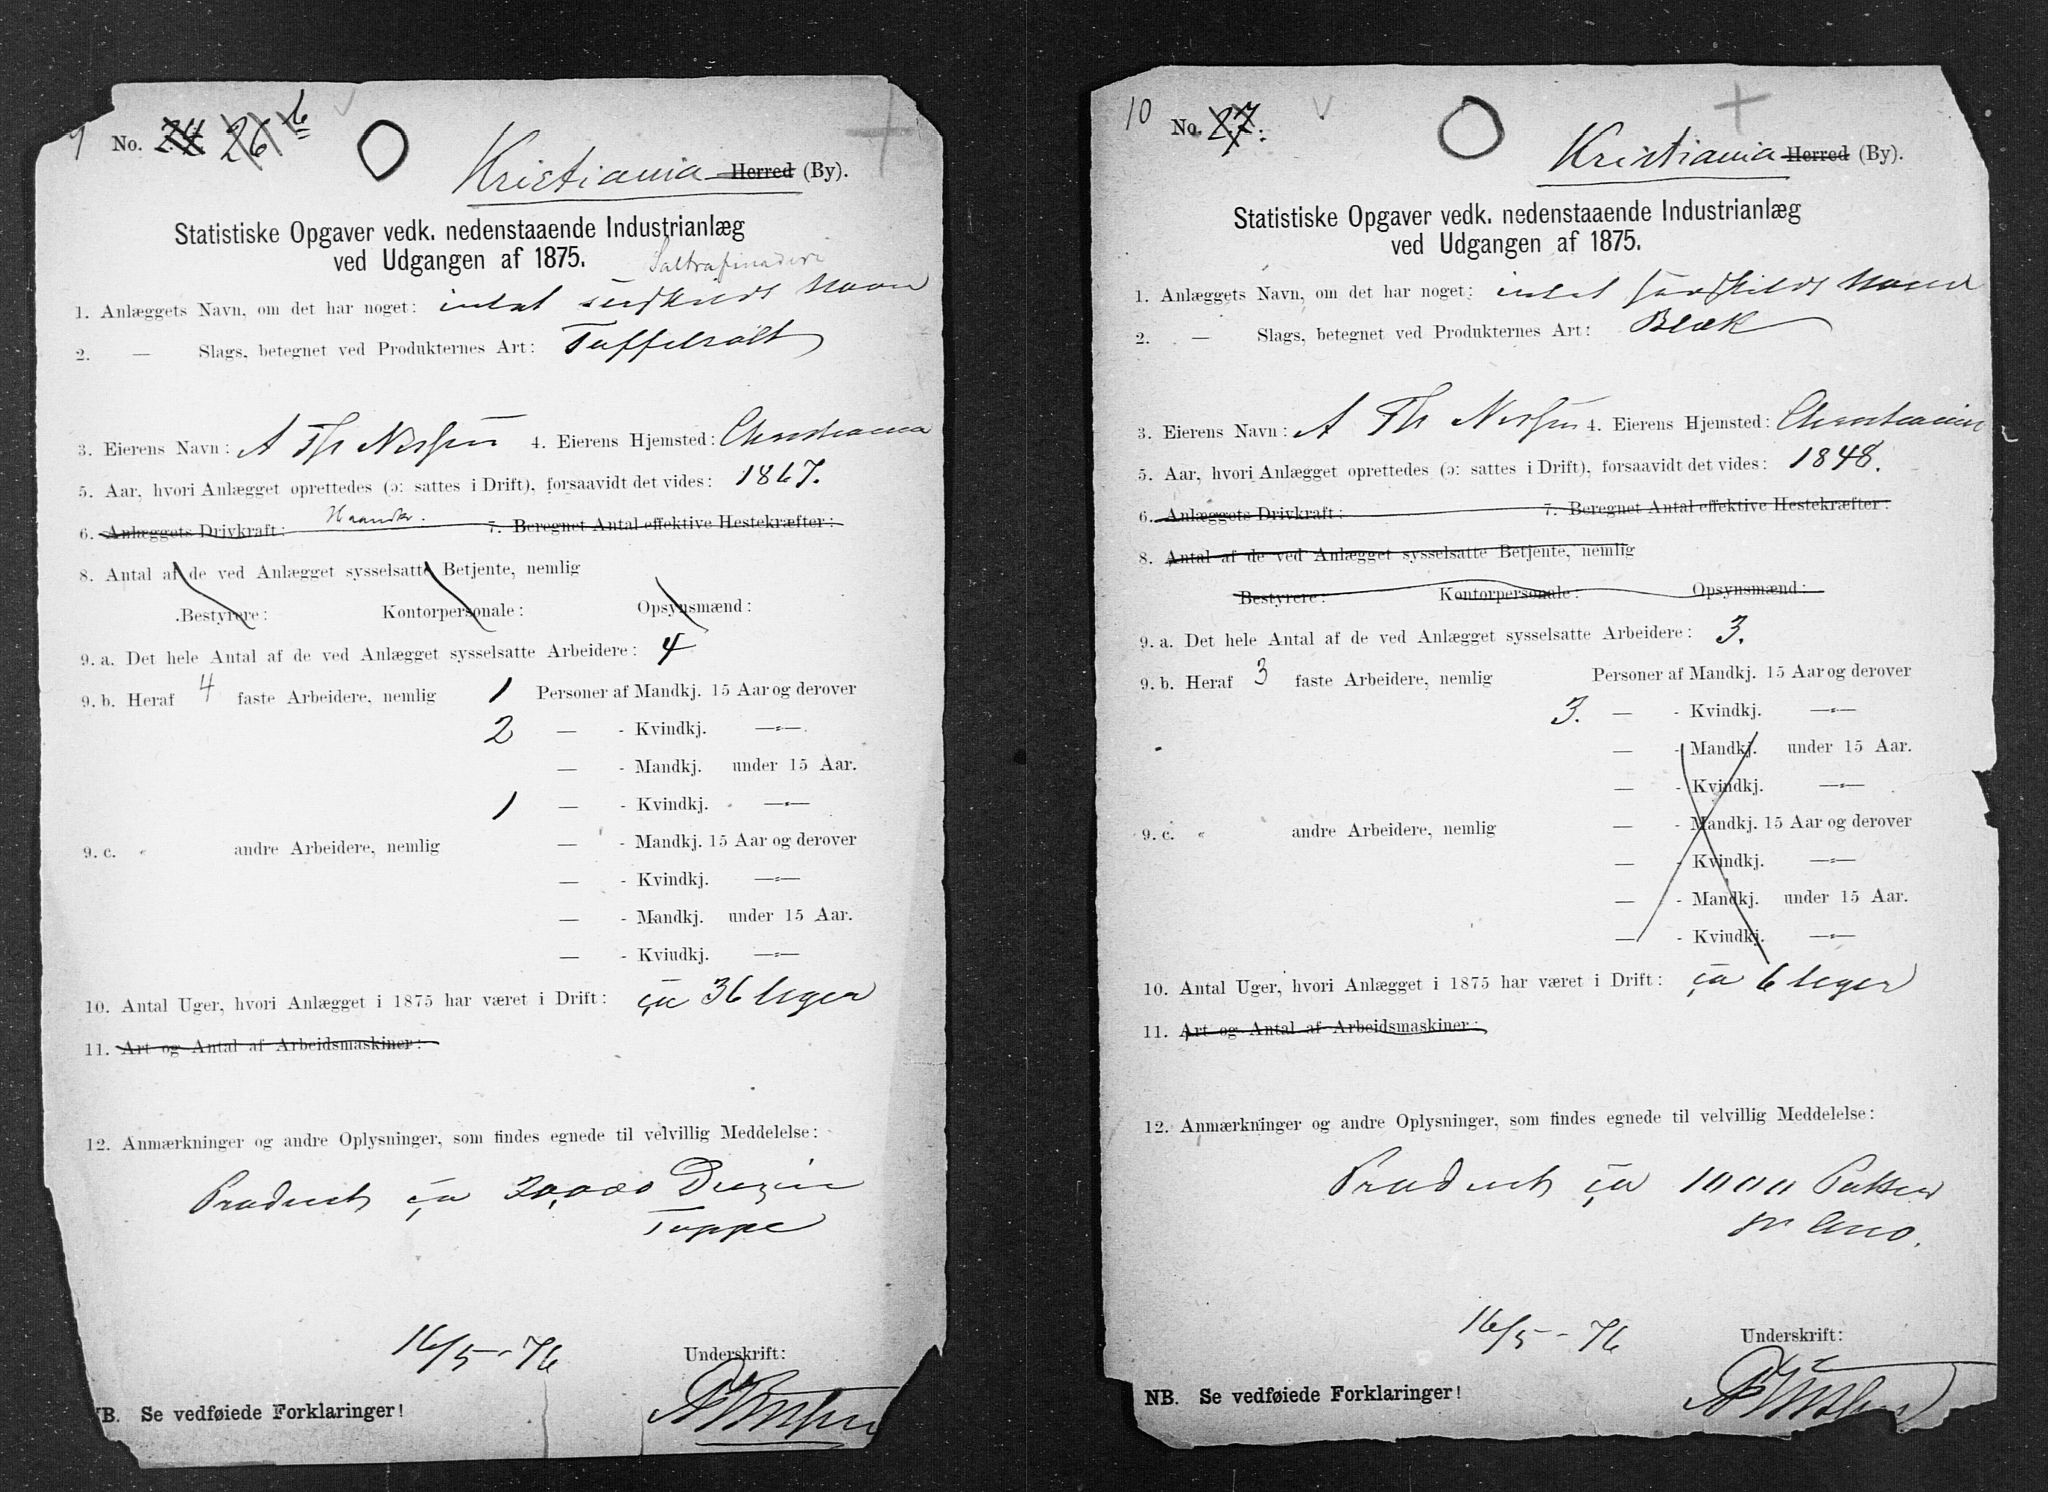 9 No. 24 26 b
Kristiania Herred (By).
Statistiske Opgaver vedk. nedenstaaende Industrianlæg
ved Udgangen af 1875.
Saltrafinaderi
1. Anlæggets Navn, om det har noget: intet særskildt Navn
2. — Slags, betegnet ved Produkternes Art: Taffelsalt
3. Eierens Navn: A Th Nissen 4. Eierens Hjemsted: Christiania
5. Aar, hvori Anlægget oprettedes (ɔ: sattes i Drift), forsaavidt det vides: 1867.
6. Anlæggets Drivkraft: Haandkr. 7. Beregnet Antal effektive Hestekræfter:
8. Antal af de ved Anlægget sysselsatte Betjente, nemlig
Bestyrere: Kontorpersonale: Opsynsmænd:
9. a. Det hele Antal af de ved Anlægget sysselsatte Arbeidere: 4
9. b. Heraf 4 faste Arbeidere, nemlig 1 Personer af Mandkj. 15 Aar og derover
2 — - Kvindkj. —„—
— - Mandkj. under 15 Aar.
1 — - Kvindkj. —„—
9. c. „ andre Arbeidere, nemlig — - Mandkj. 15 Aar og derover
— - Kvindkj. —„—
— - Mandkj. under 15 Aar.
— - Kvindkj. —„—
10. Antal Uger, hvori Anlægget i 1875 har været i Drift: ca 36 Uger
11. Art og Antal af Arbeidsmaskiner:
12. Anmærkninger og andre Oplysninger, som findes egnede til velvillig Meddelelse:
Product ca 20,000 Duzin
Toppe
16/5 - 76 Underskrift:
A Th Nissen
NB. Se vedføiede Forklaringer!
10 No. 27.
Kristiania Herred (By).
Statistiske Opgaver vedk. nedenstaaende Industrianlæg
ved Udgangen af 1875.
1. Anlæggets Navn, om det har noget: intet særskildt Navn
2. — Slags, betegnet ved Produkternes Art: Blæk
3. Eierens Navn: A Th Nissen 4. Eierens Hjemsted: Christiania
5. Aar, hvori Anlægget oprettedes (ɔ: sattes i Drift), forsaavidt det vides: 1848.
6. Anlæggets Drivkraft: 7. Beregnet Antal effektive Hestekræfter:
8. Antal af de ved Anlægget sysselsatte Betjente, nemlig
Bestyrere: Kontorpersonale: Opsynsmænd:
9. a. Det hele Antal af de ved Anlægget sysselsatte Arbeidere: 3.
9. b. Heraf 3 faste Arbeidere, nemlig Personer af Mandkj. 15 Aar og derover
3. — - Kvindkj. —„—
— - Mandkj. under 15 Aar.
— - Kvindkj. —„—
9. c. „ andre Arbeidere, nemlig — - Mandkj. 15 Aar og derover
— - Kvindkj. —„—
— - Mandkj. under 15 Aar.
— - Kvindkj. —„—
10. Antal Uger, hvori Anlægget i 1875 har været i Drift: ca 6 Uger
11. Art og Antal af Arbeidsmaskiner:
12. Anmærkninger og andre Oplysninger, som findes egnede til velvillig Meddelelse:
Product ca 1000 Potter
pr Anno.
16/5 - 76 Underskrift:
A Th Nissen
NB. Se vedføiede Forklaringer!